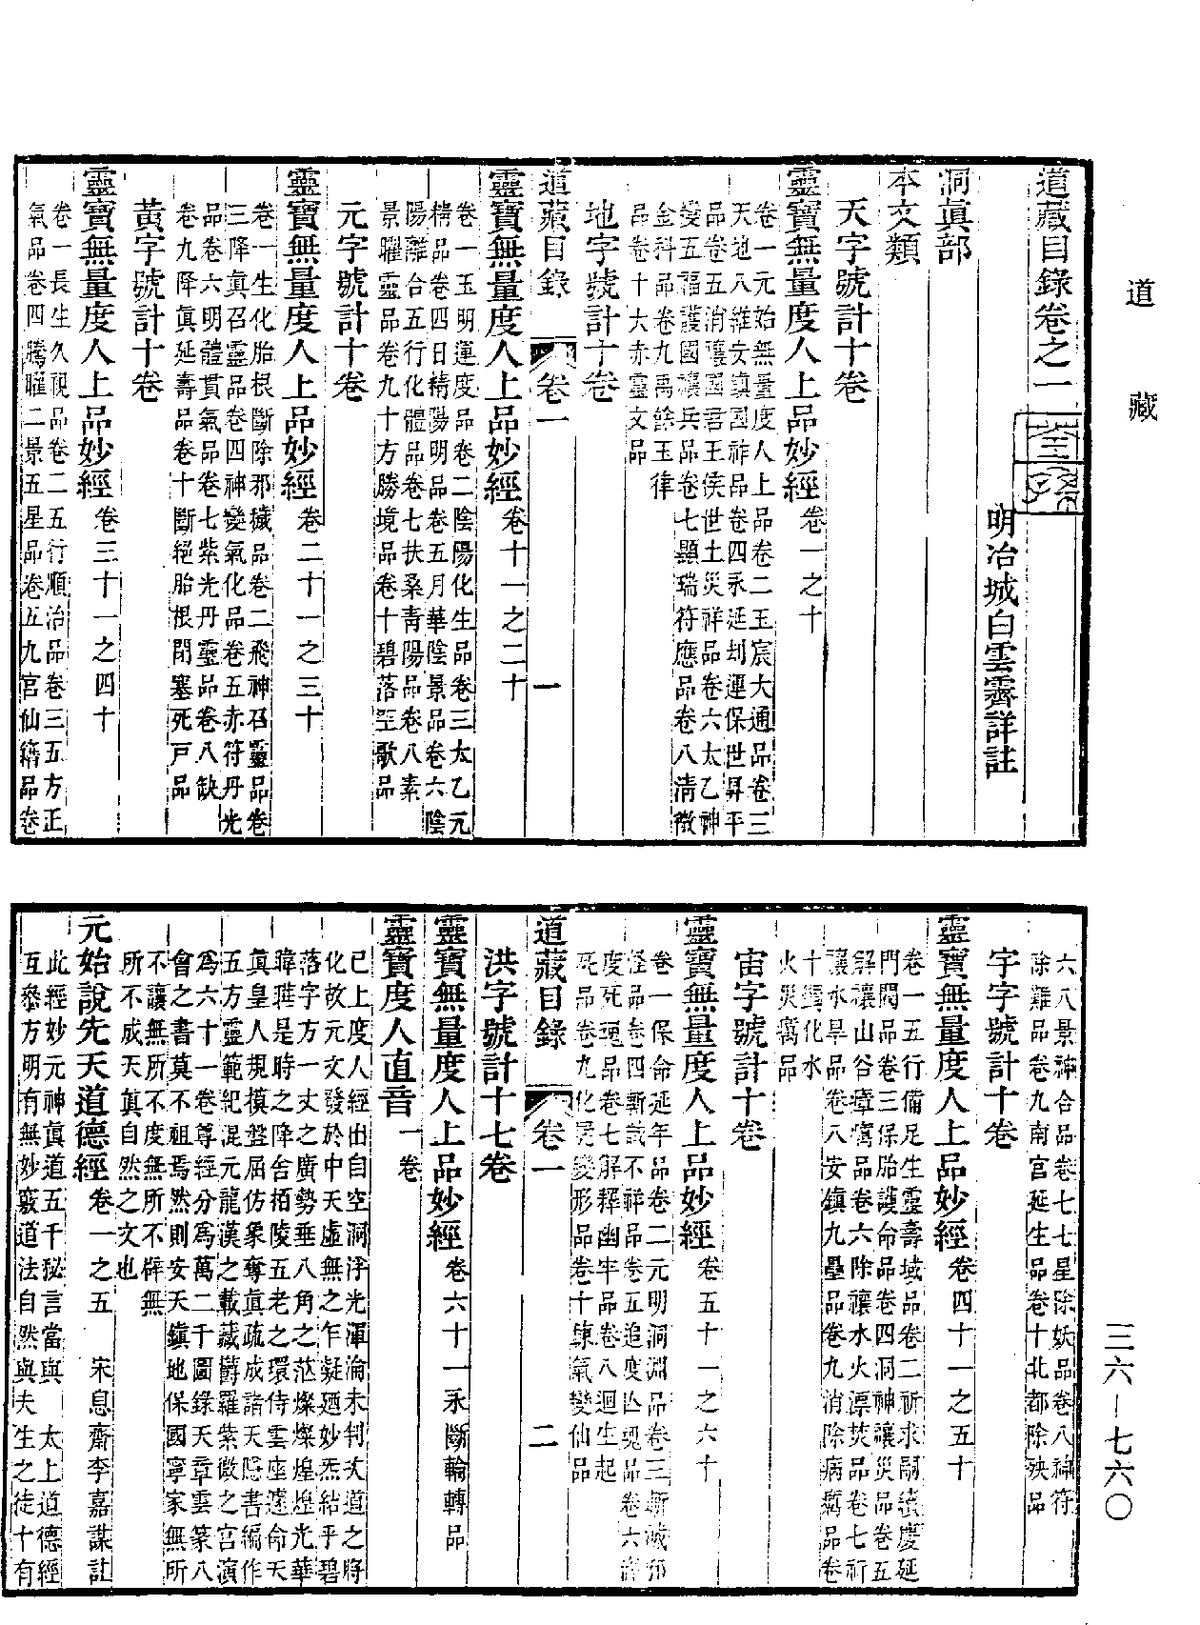 道藏
道藏目錄卷之一
明冶城白雲霽詳註
洞眞部
本文類
天字號計十卷
靈寶無量度人上品妙經卷一之十
卷一元始無量度人上品卷二玉宸大通品卷三
天地八維安鎮國祚品卷四永延劫運保世昇平
品卷五消禳國君王侯世土災祥品卷六太乙神
變五福護國禳兵品卷七顯瑞符應品卷八清微
金科品卷九禹餘玉律
品卷十大赤靈文品
地字號計十卷
道藏目錄 卷一 一
靈寶無量度人上品妙經卷十一之二十
卷一玉明運度品卷二陰陽化生品卷三太乙元
精品卷四日精陽明品卷五月華陰景品卷六陰
陽離合五行化體品卷七扶桑青陽品卷八素
景曜靈品卷九十方勝境品卷十碧落空歌品
元字號計十卷
靈寶無量度人上品妙經卷二十一之三十
卷一生化胎根斷除邪穢品卷二飛神召靈品卷
三降眞召靈品卷四神變氣化品卷五赤符丹光
品卷六明體貫氣品卷七紫光丹靈品卷八缺
卷九降眞延壽品卷十斷絕胎根閉塞死戶品
黃字號計十卷
靈寶無量度人上品妙經卷三十一之四十
卷一長生久視品卷二五行順治品卷三五方正
氣品卷四騰曜二景五星品卷五九宮仙籍品卷
六八景神合品卷七七星除妖品卷八神符
除難品卷九南宮延生品卷十北都除殃品
宇字號計十卷
靈寶無量度人上品妙經卷四十一之五十
卷一五行備足生靈壽域品卷二祈求嗣續慶延
門閥品卷三保胎護命品卷四洞神禳災品卷五
解禳山谷瘴癘品卷六除禳水火漂焚品卷七祈
禳水旱品卷八安鎮九壘品卷九消除病癘品卷
十讐化水
火災癘品
宙字號計十卷
靈寶無量度人上品妙經卷五十一之六十
卷一保命延年品卷二元明洞淵品卷三斬滅邪
怪品卷四斬馘不祥品卷五追度亡魂品卷六濟
度死魂品卷七解釋幽牢品卷八迴生起
死品卷九化死變形品卷十鍊氣變仙品
道藏目錄 卷一 二
洪字號計十七卷
靈寶無量度人上品妙經卷六十一永斷輪轉品
靈寶度人直音一卷
已上度人經出自空洞浮光渾淪未判大道之將
化故元文發於中天虛無之乍凝廼妙炁結乎碧
落字方一丈之廣勢垂八角之茫燦燦煌煌光華
暐曄是時之降舍栢陵五老之環侍雲座遂命天
眞皇人規模盤屈仿象奪眞疏成諸天隱書編作
五方靈範紀混元龍漢之載藏欝羅紫微之宮演
爲六十一卷尊經分爲萬二千圖錄天章雲篆八
會之書莫不祖焉然則安天鎮地保國寧家無所
不禳無所不度無所不辟無
所不成天眞自然之文也
元始說先天道德經卷一之五 宋息齋李嘉謀註
此經妙元神眞道五千秘言當與 太上道德經
互參方明有無妙竅道法自然與夫生之徒十有
三六―七六〇